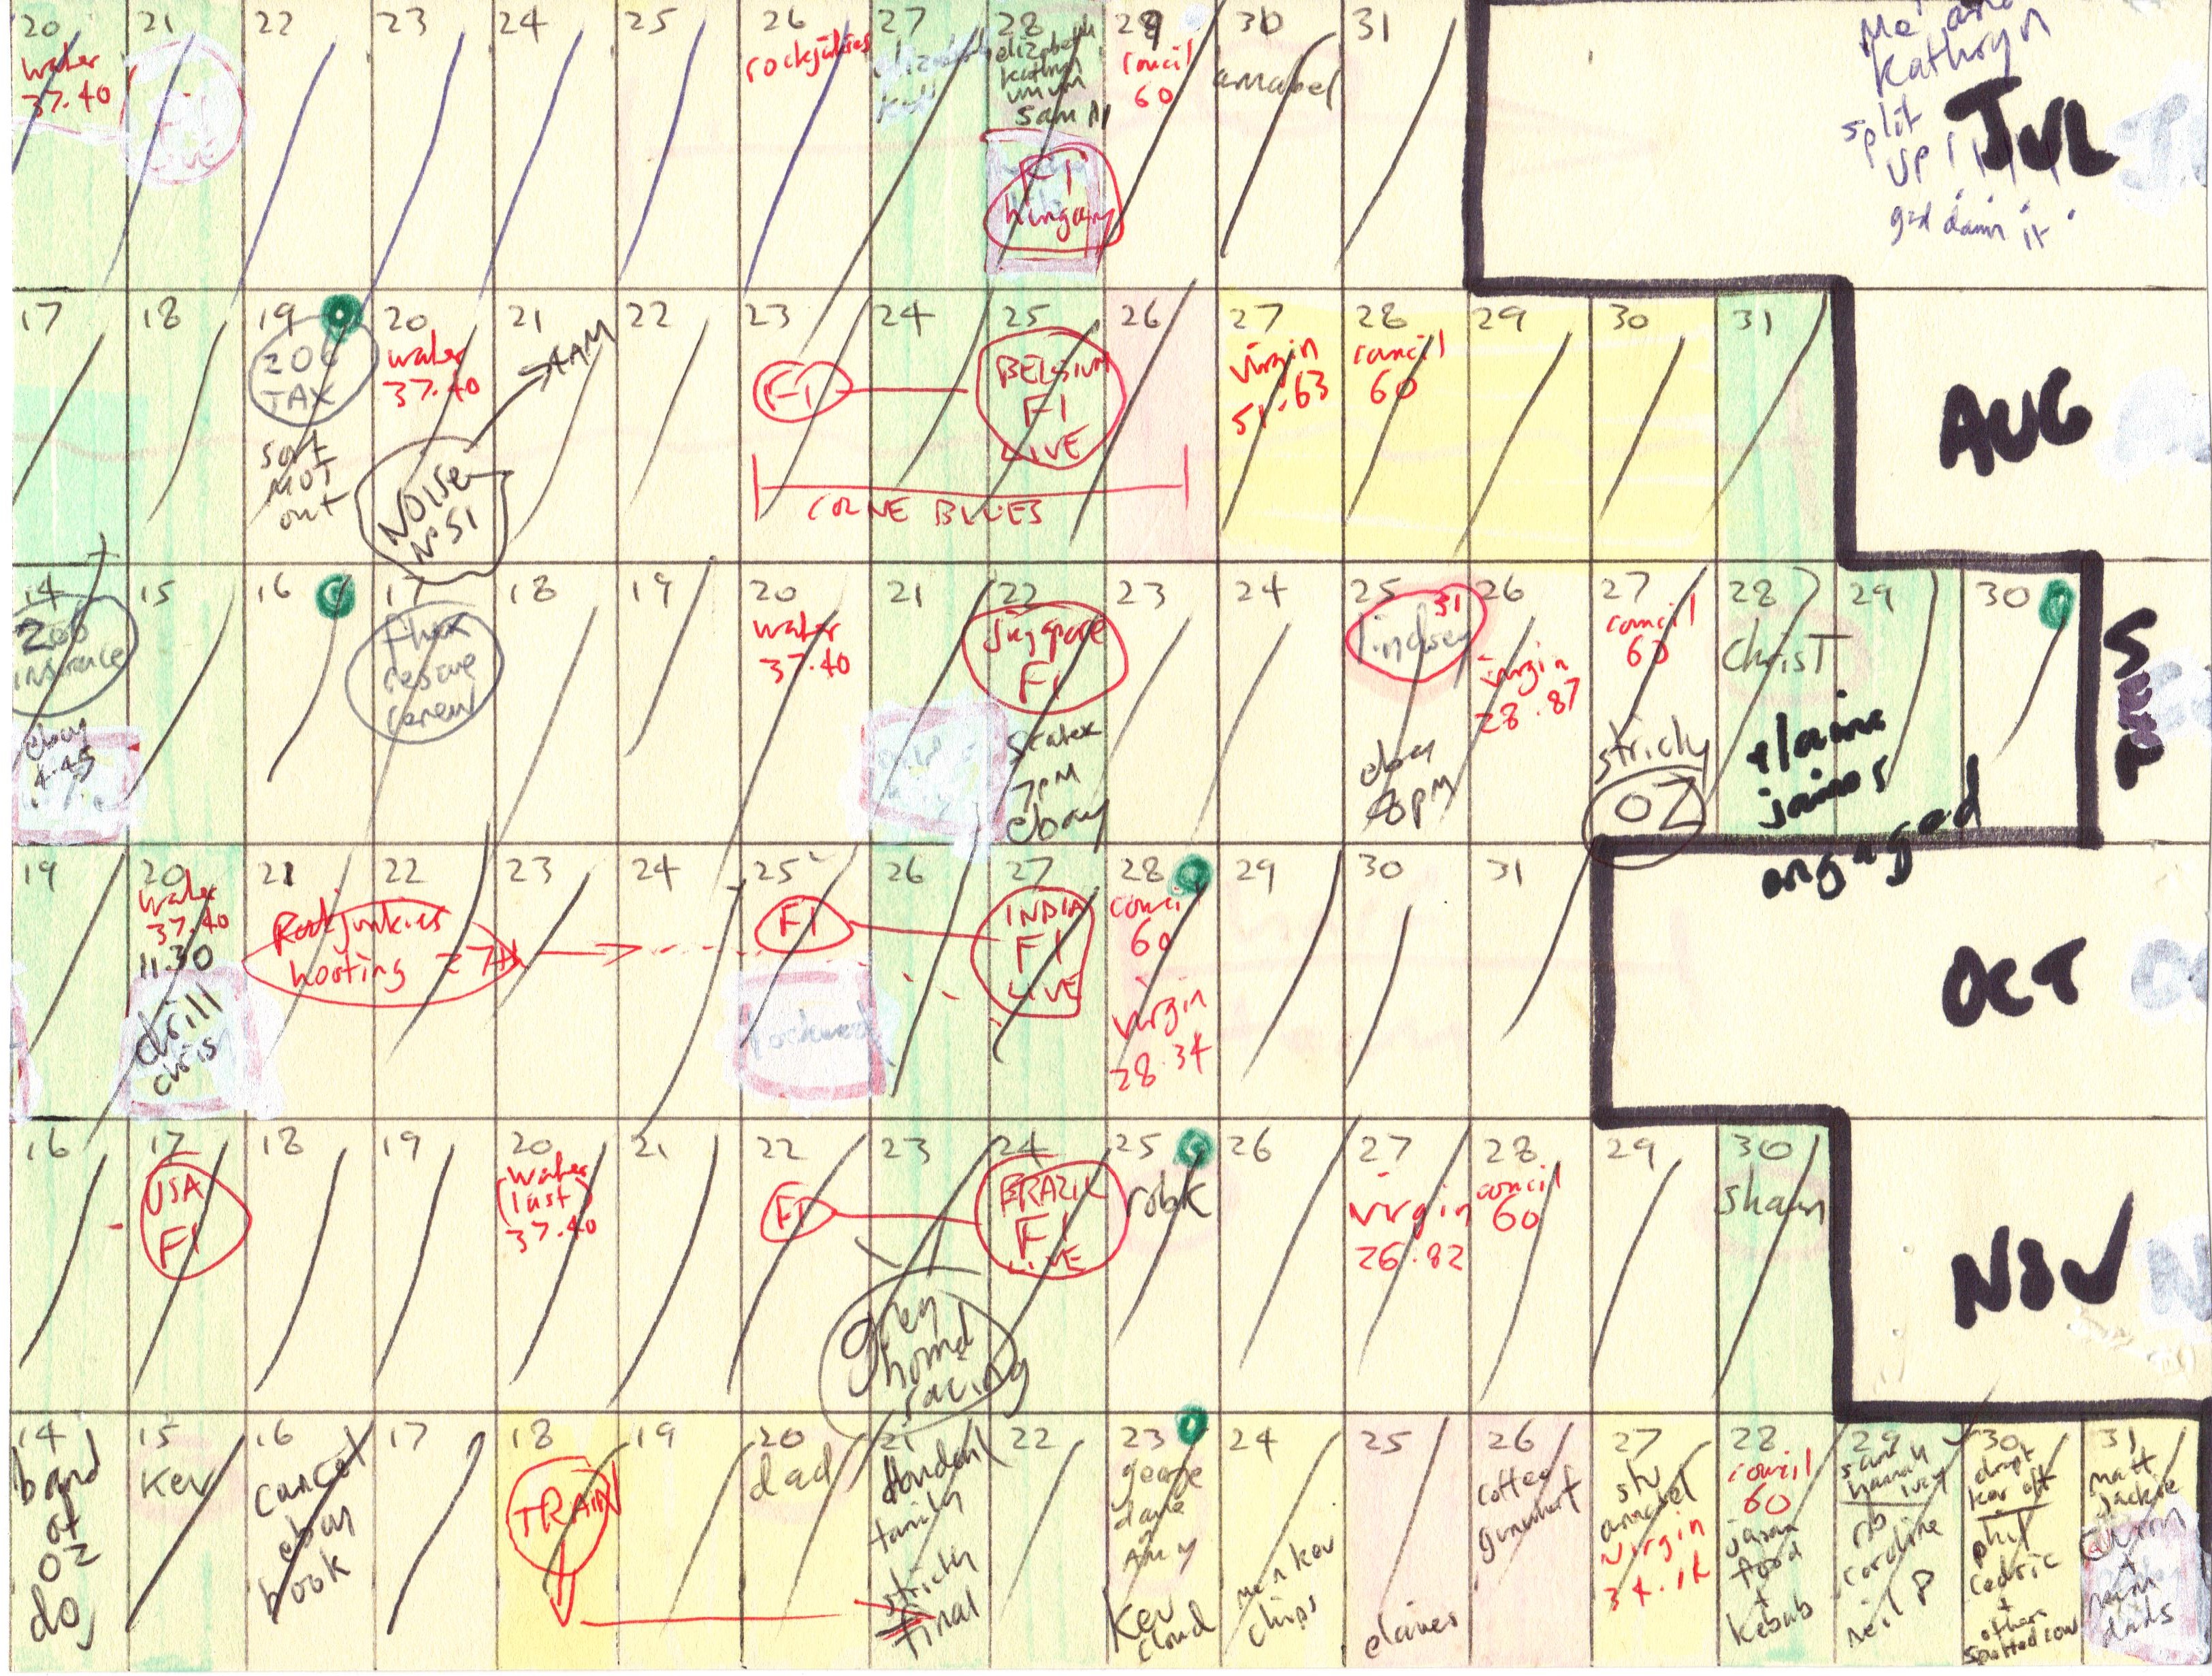 20
water
37.40
21
LIVE
22
23
24
25
26
rockjunkies
27
elizabeth
28
elizabeth
kathryn
mum
sam A
F1
hungary
29
council
60
30
annabel
31
Me and
Kathryn
split
up!
god damn it
JUL
17
18
19
200
TAX
sort
MOT
out
20
water
37.40
NOISE
No 51
21
4AM
22
23
F1
24
25
BELGIUM
F1
LIVE
26
COLNE BLUES
27
virgin
51.63
28
council
60
29
30
31
AUG
14
200
insurance
ebay
4.45
15
16
17
flux
rescue
renew
18
19
20
water
37.40
21
22
Singapore
F1
7PM
ebay
23
24
25
31
lindsey
ebay
8pm
26
virgin
28.87
27
council
60
strictly
OZ
28
christ
elaine
james
engaged
29
30
19
20
water
37.40
11.30
drill
chris
21
22
Rockjunkies
hosting 27th
23
24
25
F1
26
27
INDIA
F1
LIVE
28
council
60
virgin
28.34
29
30
31
OCT
16
17
USA
F1
18
19
20
water
(last)
37.40
21
22
F1
23
grey
hound
racing
24
BRAZIL
F1
LIVE
25
rob K
26
27
virgin
26.82
28
council
60
29
30
shaun
NOV
14
band
at
OZ
do
15
Kev
16
cancel
ebay
book
17
18
TRAIN
19
20
dad
21
family
strictly
final
22
23
george
dave
Amy
Kev
cloud
24
me n kev
chips
25
elaines
26
coffee
27
stu
annabel
virgin
34.12
28
council
60
food
+
kebab
29
sam
hannah
lucy
rob
caroline
neil P
30
dropt
kev off
phil
cedric
+
others
spotted cow
31
matt
jackie
+
dads